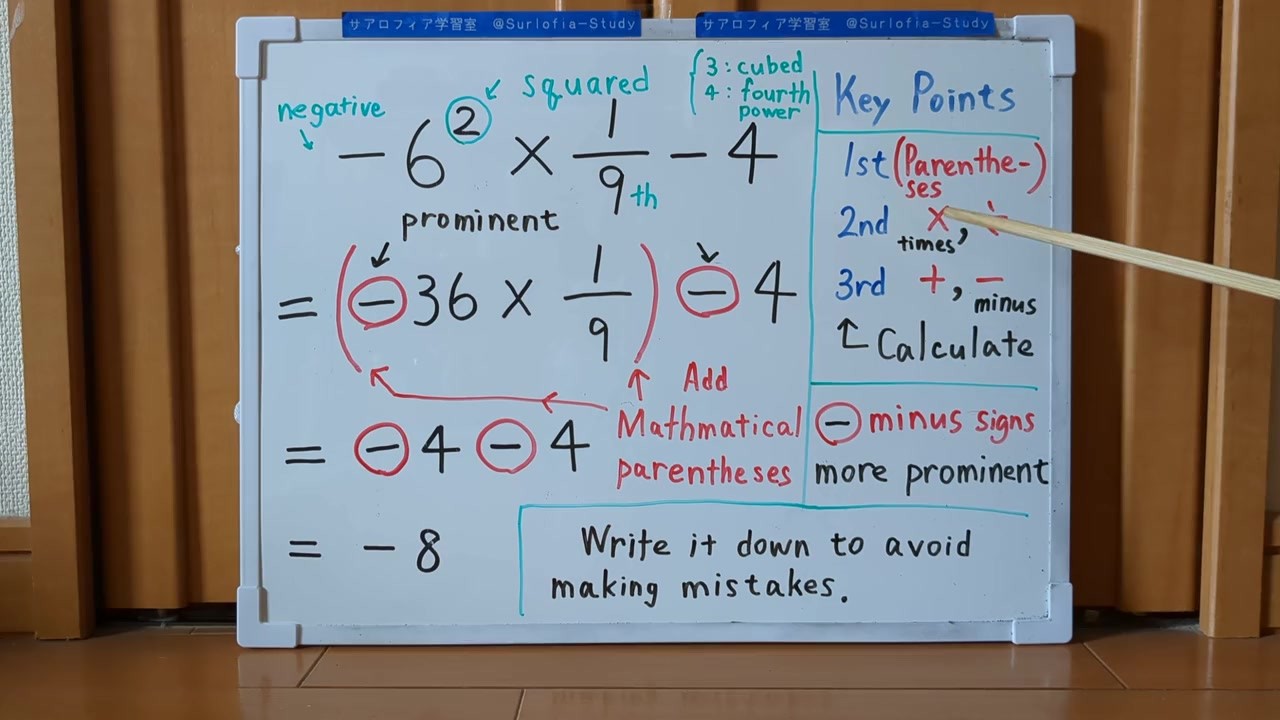 サアロフィア学習室 @Surlofia-Study
サアロフィア学習室 @Surlofia-Study
negative
squared
3 : cubed
4 : fourth
power
− 6² × 1/9 − 4
th
prominent
= ( − 36 × 1/9 ) − 4
Add
Mathmatical
parentheses
= − 4 − 4
= − 8
Key Points
1st (Parenthe-)
ses
2nd ×, ÷
times
3rd +, −
minus
Calculate
− minus signs
more prominent
Write it down to avoid
making mistakes.